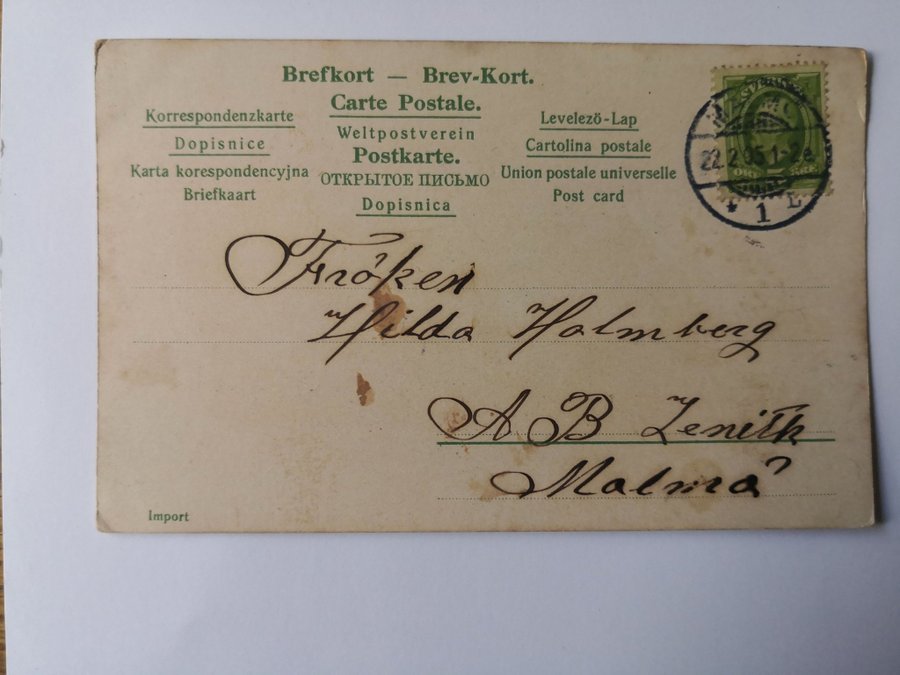 Brefkort — Brev-Kort.
Carte Postale.
Weltpostverein
Postkarte.
ОТКРЫТОЕ ПИСЬМО
Dopisnica
Korrespondenzkarte
Dopisnice
Karta korespondencyjna
Briefkaart
Levelező-Lap
Cartolina postale
Union postale universelle
Post card
22.2.05.1-2
1 L
Fröken
Hilda Holmberg
A B Zenith
Malmö
Import